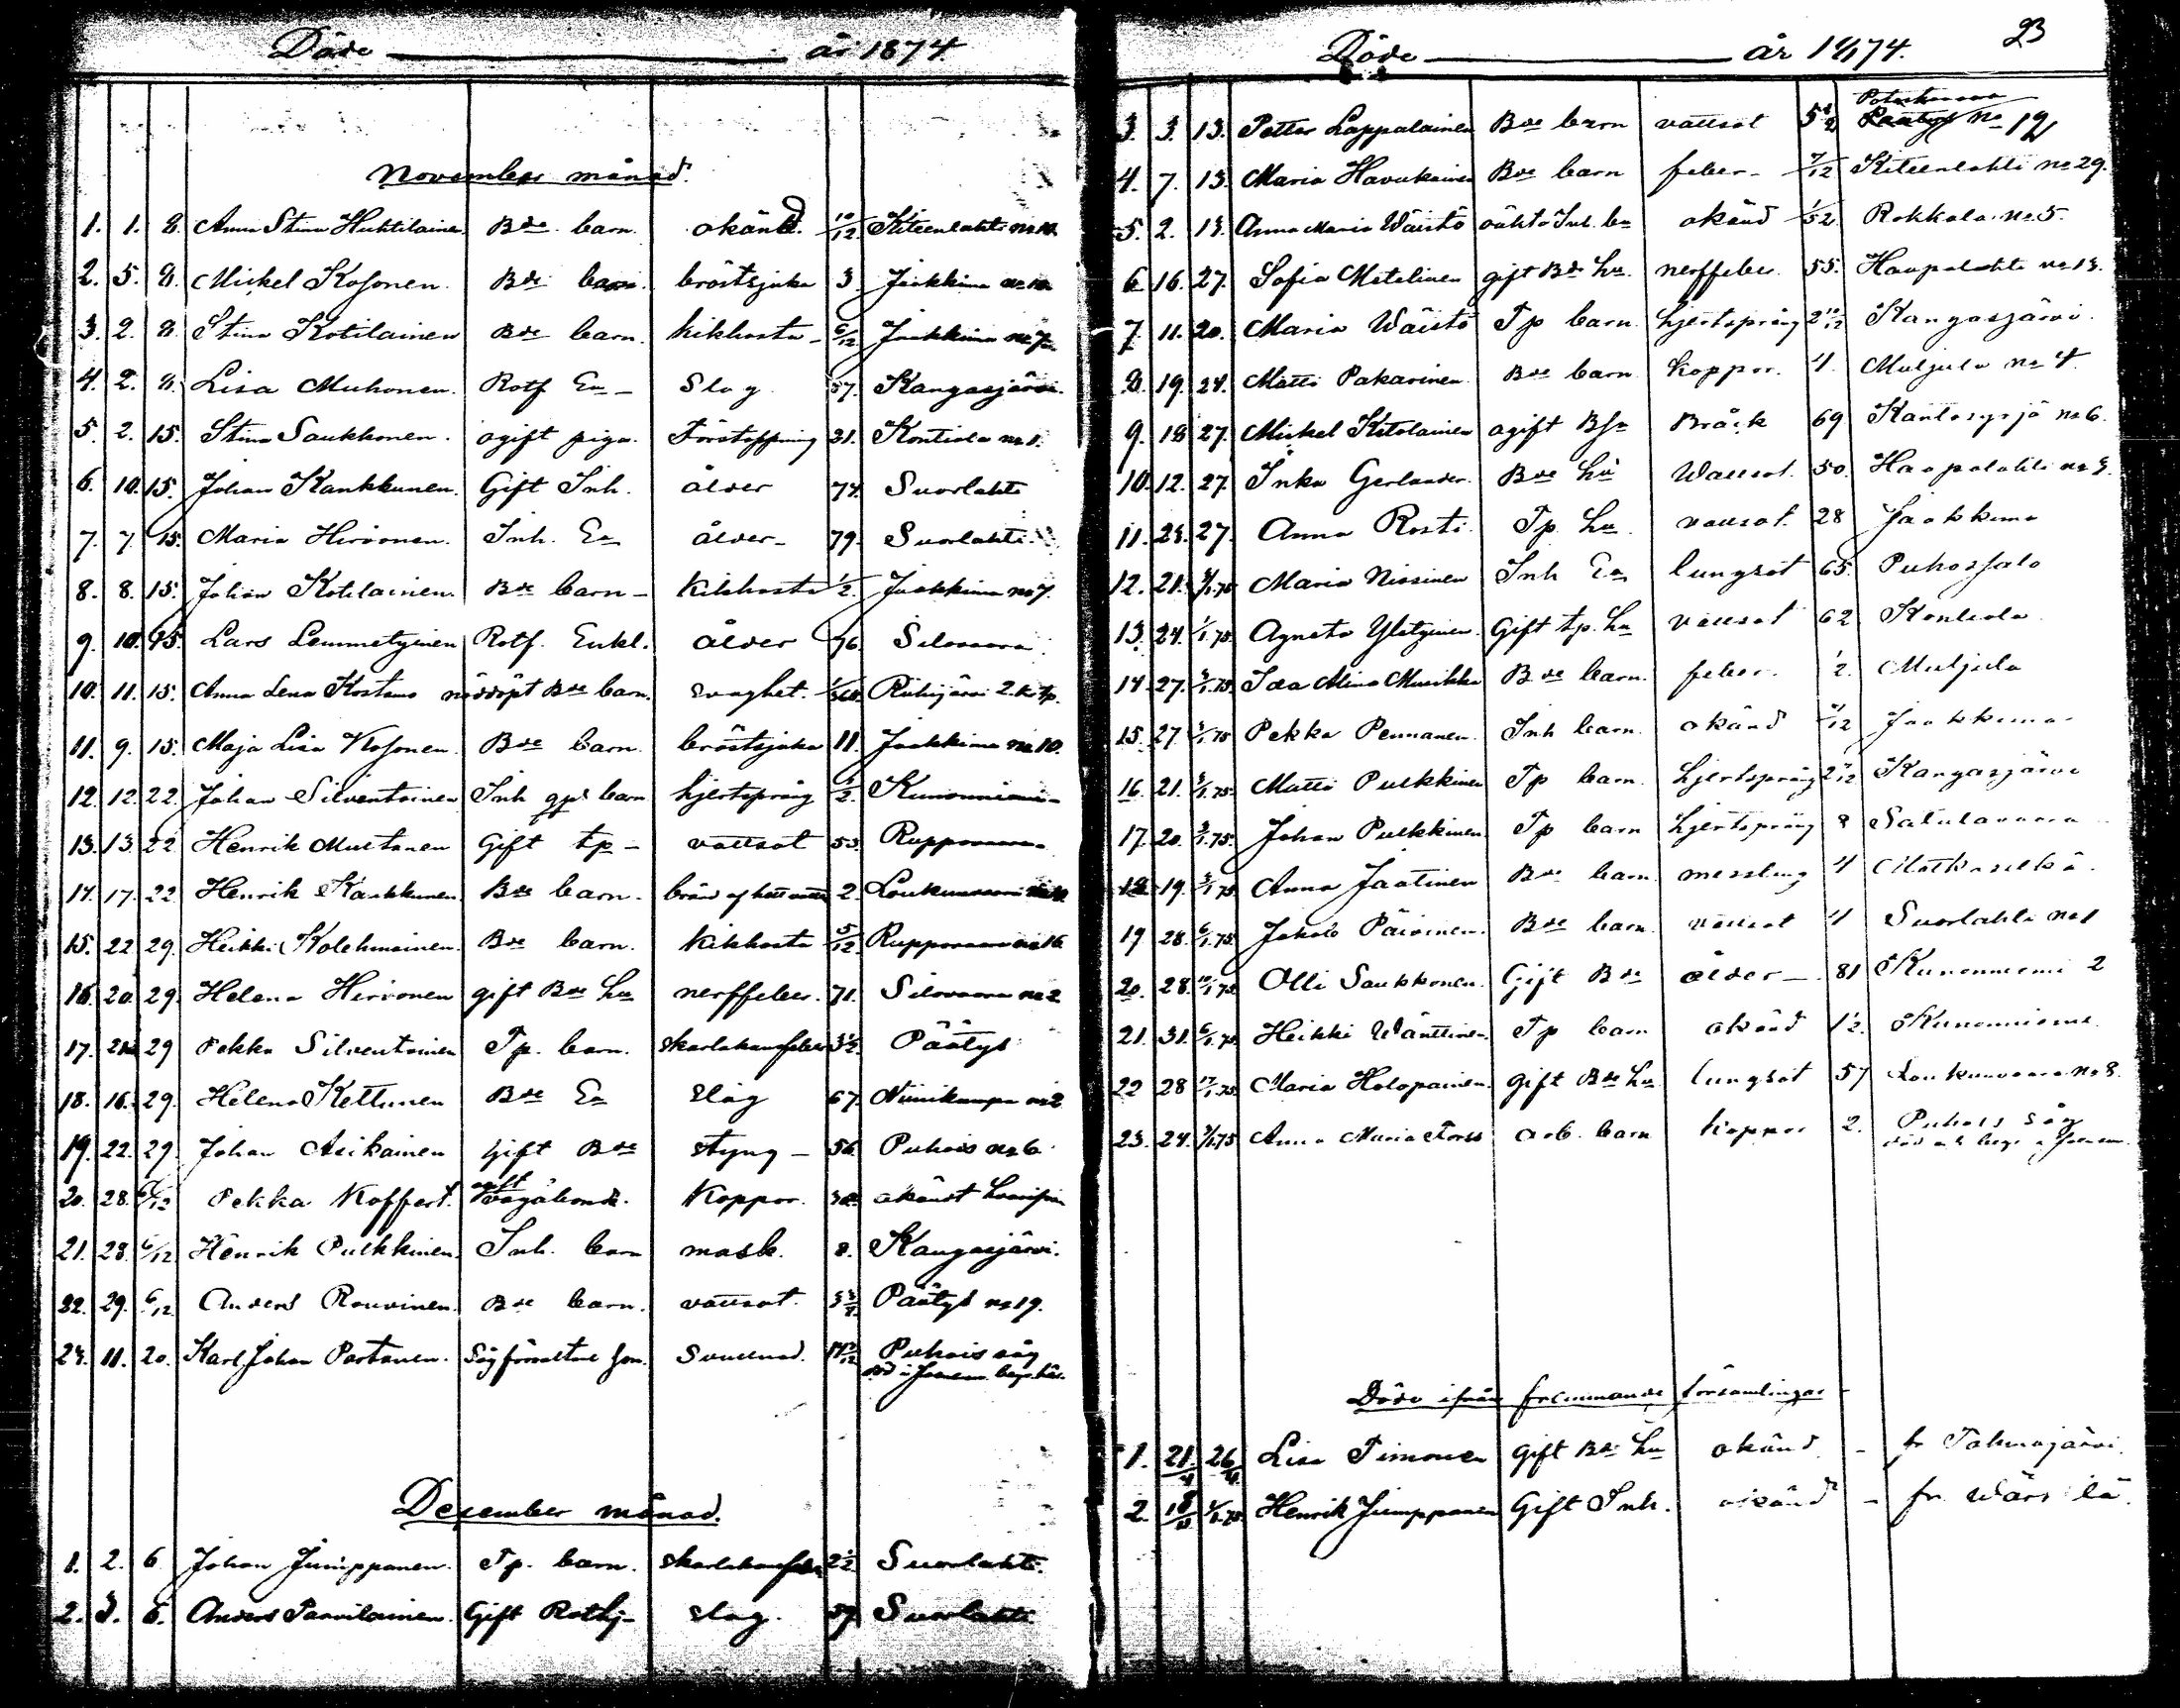 Döde år 1874.
November månad.
1. 1. 8. Anna Stina Huttilainen Bde barn. okänd. 10/12 Kiteenlahti no 10.
2. 5. 8. Mickel Kosonen. Bde barn. bröstsjuka 3. Jaakkima no 10.
3. 2. 8. Stina Kotilainen Bde barn. kikhosta 6/12 Jaakkima no 7.
4. 2. 8. Lisa Muhonen. Rotf Ea Slag 57. Kangasjärvi.
5. 2. 15. Stina Saukkonen. ogift piga. Förstoppning 21. Kontiola no 1.
6. 10. 15. Johan Kankkunen. Gift Inh. ålder 74 Suorlahti
7. 7. 15. Maria Hirvonen. Inh. Ea ålder 79. Suorlahti.
8. 8. 15. Johan Kotilainen. Bde barn Kikhosta 1/2. Jaakkima no 7.
9. 10. 15. Lars Lemmetyinen Rotf. Enkl. ålder 76 Silovaara.
10. 11. 15. Anna Lena Kostamo nöddöpt Bde barn. svaghet. 1/365 Riihijärvi 2. kr tp.
11. 9. 15. Maja Lisa Kosonen. Bde barn. bröstsjuka 11. Jaakkima no 10.
12. 12. 22. Johan Silventoinen Inh barn hjertsprång Kunonniemi
13. 13. 22. Henrik Mustonen Gift tp vattsot 53. Ruppovaara
14. 17. 22. Henrik Kankkunen. Bde barn. bränd af hett vatten 2. Loukunvaara
15. 22 29. Heikki Kolehmainen. Bde barn. kikhosta 5/12 Ruppovaara no 16
16. 20. 29. Helena Hirvonen gift Bde hu nerffeber. 71. Silovaara no 2
17. 29 Pekka Silventoinen Tp. barn. skarlakansfeber 3 1/2. Päätys
18. 16. 29. Helena Kettunen Bde Ea slag 67. Niinikumpu no 2
19. 22. 29. Johan Asikainen Gift Bde styng 56. Puhois no 6.
20. 28. 6/12 Pekka Koffert. ogift vagabond. Koppor. okänd hemort
21. 28. 6/12 Henrik Pulkkinen. Inh. barn mask. 8. Kangasjärvi.
22. 29. 6/12 Anders Rouvinen. Bde barn. vattsot. Päätys no 19.
23. 11. 20. Karl Johan Partanen. Sågförvaltare son. Svullnad. Puhois såg
död i Joensu begr. här.
December månad.
1. 2. 6 Johan Jumppanen. Tp. barn. skarlakansfeber 2 1/2 Suorlahti.
2. 3. 6. Anders Parvilainen. Gift Rothj slag. 57 Suorlahti
Döde år 1874. 23
3. 3. 13. Petter Lappalainen Bde barn vattsot 5 1/2 Päätys no 19
4. 7. 13. Maria Havukainen Bde barn feber 7/12 Kiteenlahti no 29.
5. 2. 13. Anna Maria Wäistö oäkta Inh. ba okänd 1/52. Rokkala no 5.
6 16. 27. Sofia Matalinen gift Bde hu. nerffeber. 55. Haapalahti no 13.
7. 11. 20. Maria Wäistö Tp barn. hjertsprång 2 Kangasjärvi.
8. 19. 24. Matti Pakarinen Bde barn koppor. 4. Muljula no 4.
9. 18 27. Mickel Kotolainen ogift Bråck 69 Kantosyrjä no 6.
10. 12. 27. Inka Gerlander. Bde hu Wattsot. 50. Haapalahti no 3.
11. 23. 27. Anna Rosti. Tp. hu vattsot. 28 Jaakkima
12. 21. Maria Nissinen Inh Ea lungsot 65. Puhossalo
13. 24. 1/1.75. Agneta Yletyinen. Gift tp. hu vattsot 62 Kontiola
14. 27. 3/1.75. Ida Mina Musikka Bde barn. feber. 1/2. Muljula
15. 27. 3/1.75 Pekka Pennanen. Inh barn. okänd Jaakkima
16. 21. 3/1.75. Matti Pulkkinen Tp barn. hjertsprång 2 Kangasjärvi
17. 20. 3/1.75. Johan Pulkkinen Tp barn hjertsprång 8 Satulavaara
18. 19. 3/1.75 Anna Jaatinen Bde barn messling 4 Matkaselkä.
19 28. 6/1.75. Jakob Päivinen. Bde barn. vattsot 4 Suorlahti no 1
20. 28. 10/1.75. Olli Saukkonen. Gift Bde ålder 81 Kunonniemi 2
21. 31. 6/1.75. Heikki Wänttinen. Tp barn okänd 1/2. Kunonniemi
22 28 17/1.75. Maria Holopainen. gift Bde hu lungsot 57 Loukunvaara no 8.
23. 24. 3/1.75 Anna Maria Forss arb. barn koppor 2. Puhois såg
död och begr. i Joensu.
Döde ifrån fremmande församlingar
1. 21. 26. Lisa Timonen gift Bde hu okänd - fr Tohmajärvi.
2. Henrik Jumppanen Gift Inh. okänd - fr. Wärtsilä.